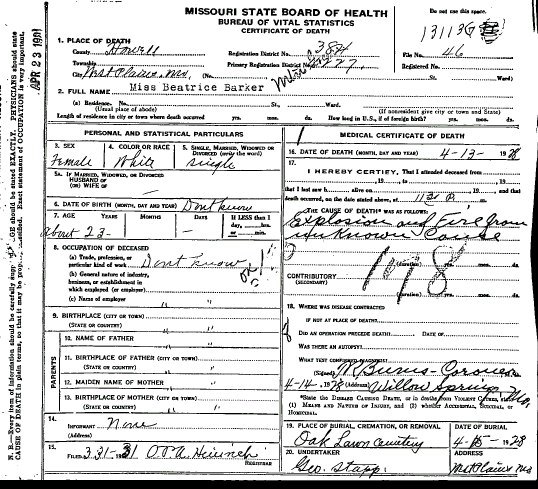 MISSOURI STATE BOARD OF HEALTH
BUREAU OF VITAL STATISTICS
CERTIFICATE OF DEATH
Do not use this space.
1. PLACE OF DEATH
County Howell
Registration District No. 384
File No. 46
Township
Primary Registration District No.
Registered No.
City West Plains, Mo. (No. St. Ward)
2. FULL NAME Miss Beatrice Barker
(a) Residence. No. St. Ward.
(Usual place of abode) (If nonresident give city or town and State)
Length of residence in city or town where death occurred yrs. mos. ds. How long in U.S., if of foreign birth? yrs. mos. ds.
PERSONAL AND STATISTICAL PARTICULARS
3. SEX 4. COLOR OR RACE 5. SINGLE, MARRIED, WIDOWED OR DIVORCED (write the word)
Female White single
5a. IF MARRIED, WIDOWED, OR DIVORCED
HUSBAND OF
(OR) WIFE OF
6. DATE OF BIRTH (MONTH, DAY AND YEAR) Dont know
7. AGE YEARS MONTHS DAYS If LESS than 1 day, hrs. or min.
About 23 -
8. OCCUPATION OF DECEASED
(a) Trade, profession, or particular kind of work Dont know
(b) General nature of industry, business, or establishment in which employed (or employer)
(c) Name of employer
9. BIRTHPLACE (CITY OR TOWN)
(STATE OR COUNTRY)
PARENTS
10. NAME OF FATHER
11. BIRTHPLACE OF FATHER (CITY OR TOWN)
(STATE OR COUNTRY)
12. MAIDEN NAME OF MOTHER
13. BIRTHPLACE OF MOTHER (CITY OR TOWN)
(STATE OR COUNTRY)
14. INFORMANT None
(Address)
15. FILED 3-31-1931
REGISTRAR
MEDICAL CERTIFICATE OF DEATH
16. DATE OF DEATH (MONTH, DAY AND YEAR) 4-13-1928
17. I HEREBY CERTIFY, That I attended deceased from
, 19 , to , 19
that I last saw h alive on , 19 , and that
death occurred, on the date stated above, at 11 P m.
THE CAUSE OF DEATH WAS AS FOLLOWS:
Explosion and Fire from
unknown Cause
178
(duration) yrs. mos. ds.
CONTRIBUTORY
(SECONDARY)
(duration) yrs. mos. ds.
18. WHERE WAS DISEASE CONTRACTED
IF NOT AT PLACE OF DEATH?
DID AN OPERATION PRECEDE DEATH? DATE OF
WAS THERE AN AUTOPSY?
WHAT TEST CONFIRMED DIAGNOSIS?
(Signed) Burns-Coroner
4-14-1928 (Address) Willow Springs, Mo.
*State the DISEASE CAUSING DEATH, or in deaths from VIOLENT CAUSES, state
(1) MEANS AND NATURE OF INJURY, and (2) whether ACCIDENTAL, SUICIDAL, or
HOMICIDAL.
19. PLACE OF BURIAL, CREMATION, OR REMOVAL DATE OF BURIAL
Oak Lawn Cemetery 4-15-1928
20. UNDERTAKER ADDRESS
Geo. Stapp. West Plains Mo